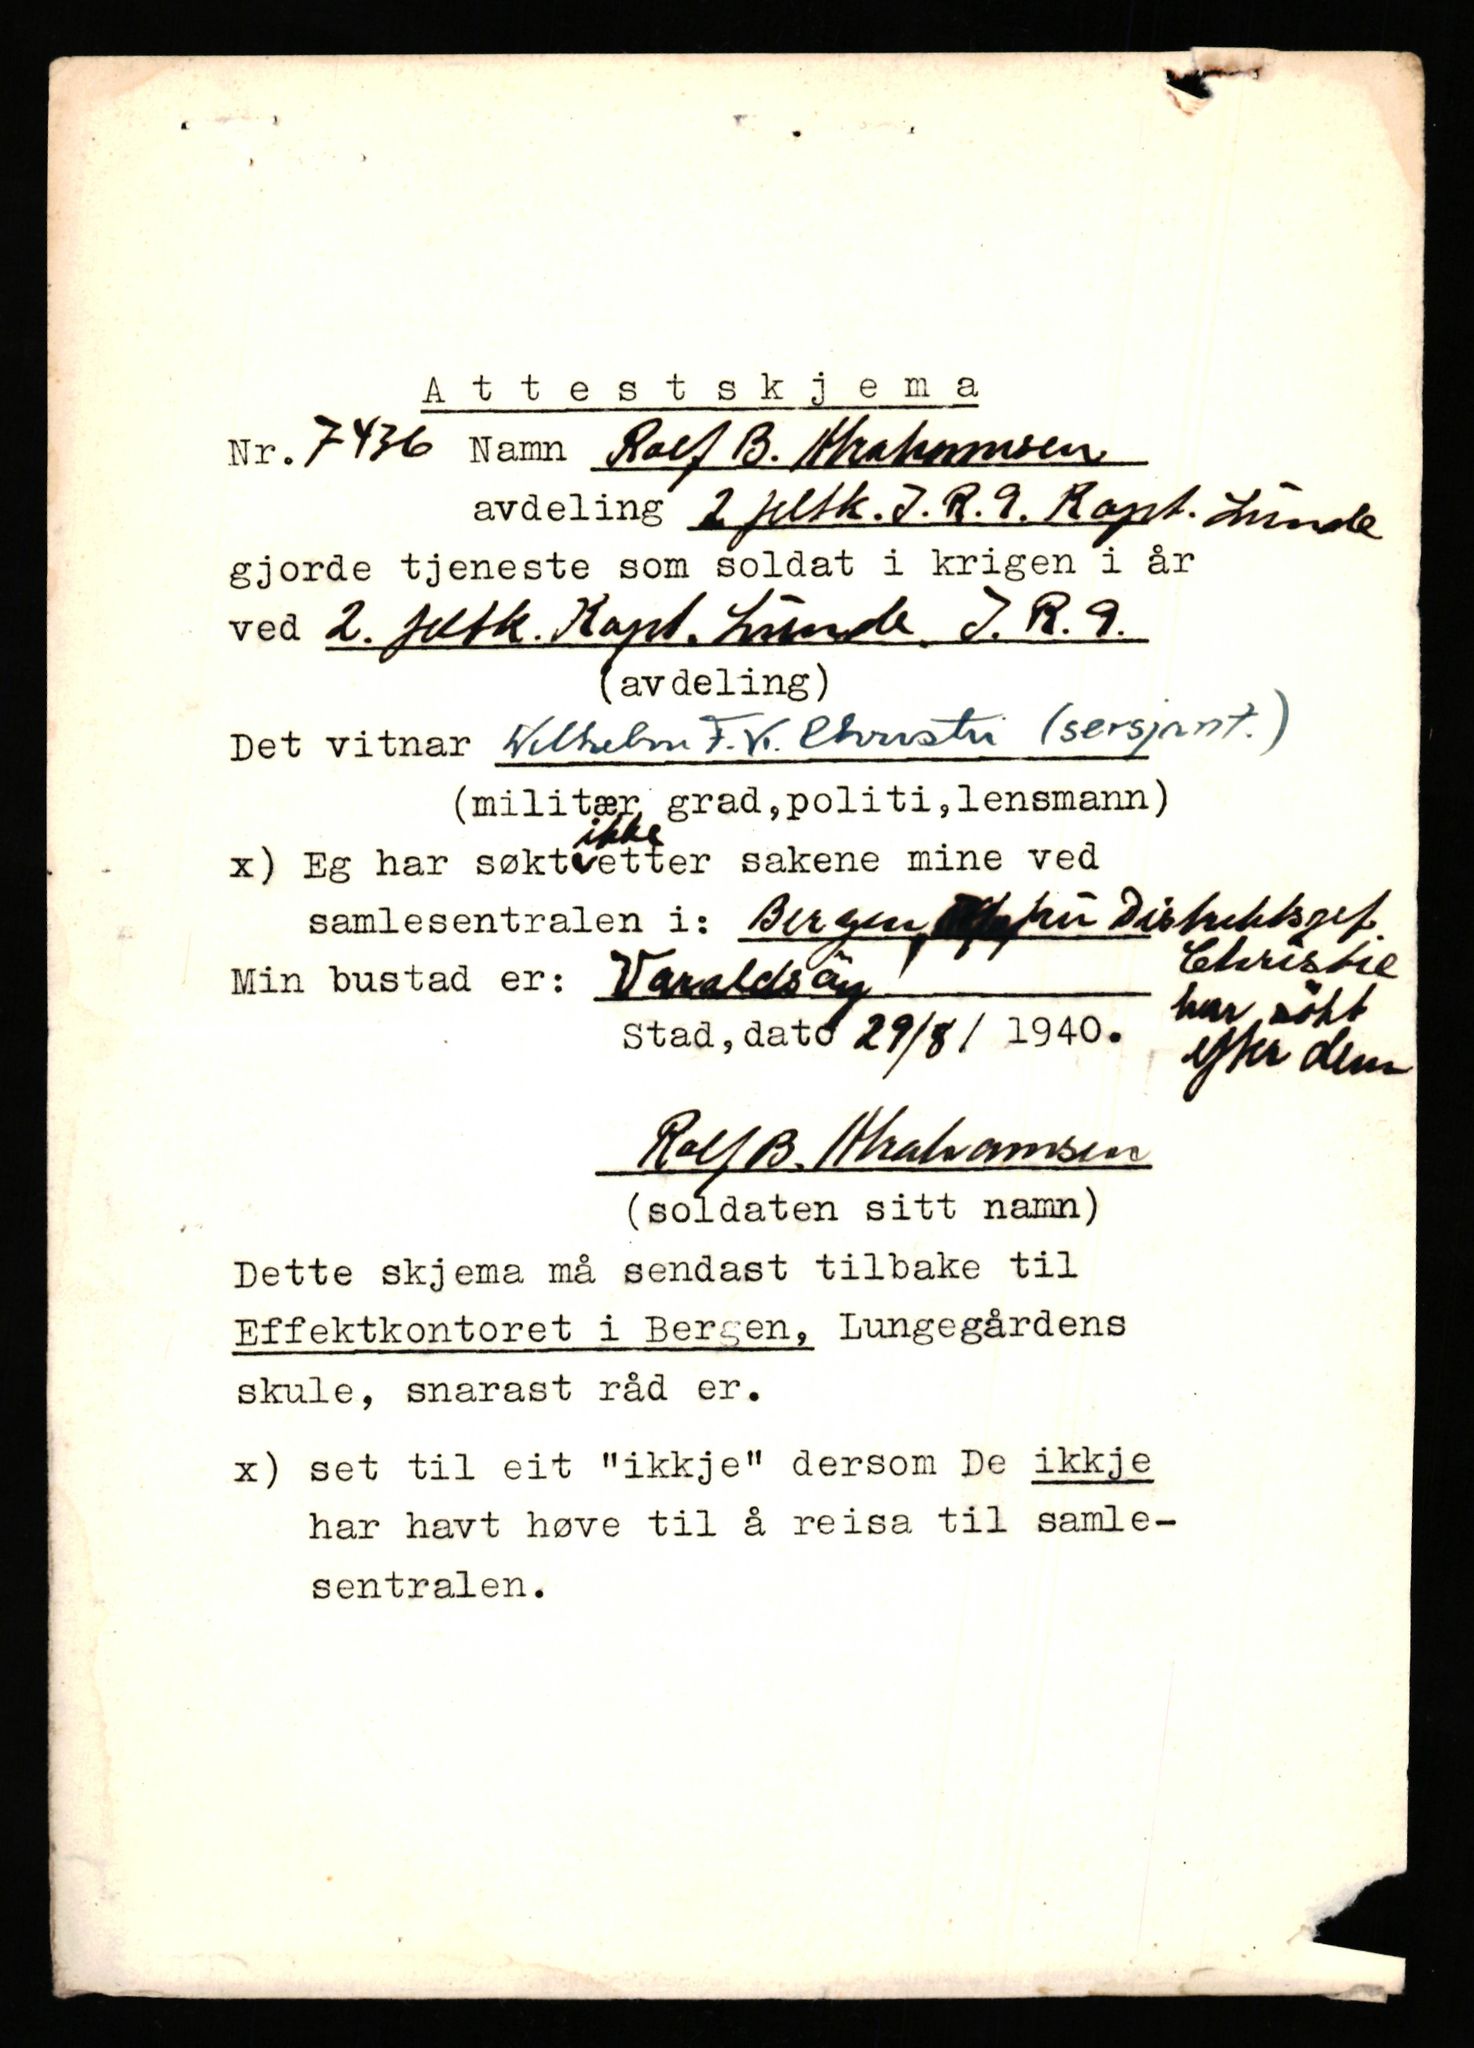 Attestskjema
Nr. 7436 Namn Rolf B. Abrahamsen
avdeling 2 feltk. I. R. 9. Kapt. Lunde
gjorde tjeneste som soldat i krigen i år
ved 2. feltk. Kapt. Lunde, I. R. 9.
(avdeling)
Det vitnar Wilhelm F. K. Christie (sersjant.)
(militær grad,politi,lensmann)
ikke
x) Eg har søkt etter sakene mine ved
samlesentralen i: Bergen, Distriktsgef.
Christie
Min bustad er: Varaldsöy
har sökt
Stad,dato 29/8/ 1940.
efter dem
Rolf B. Abrahamsen
(soldaten sitt namn)
Dette skjema må sendast tilbake til
Effektkontoret i Bergen, Lungegårdens
skule, snarast råd er.
x) set til eit "ikkje" dersom De ikkje
har havt høve til å reisa til samle-
sentralen.